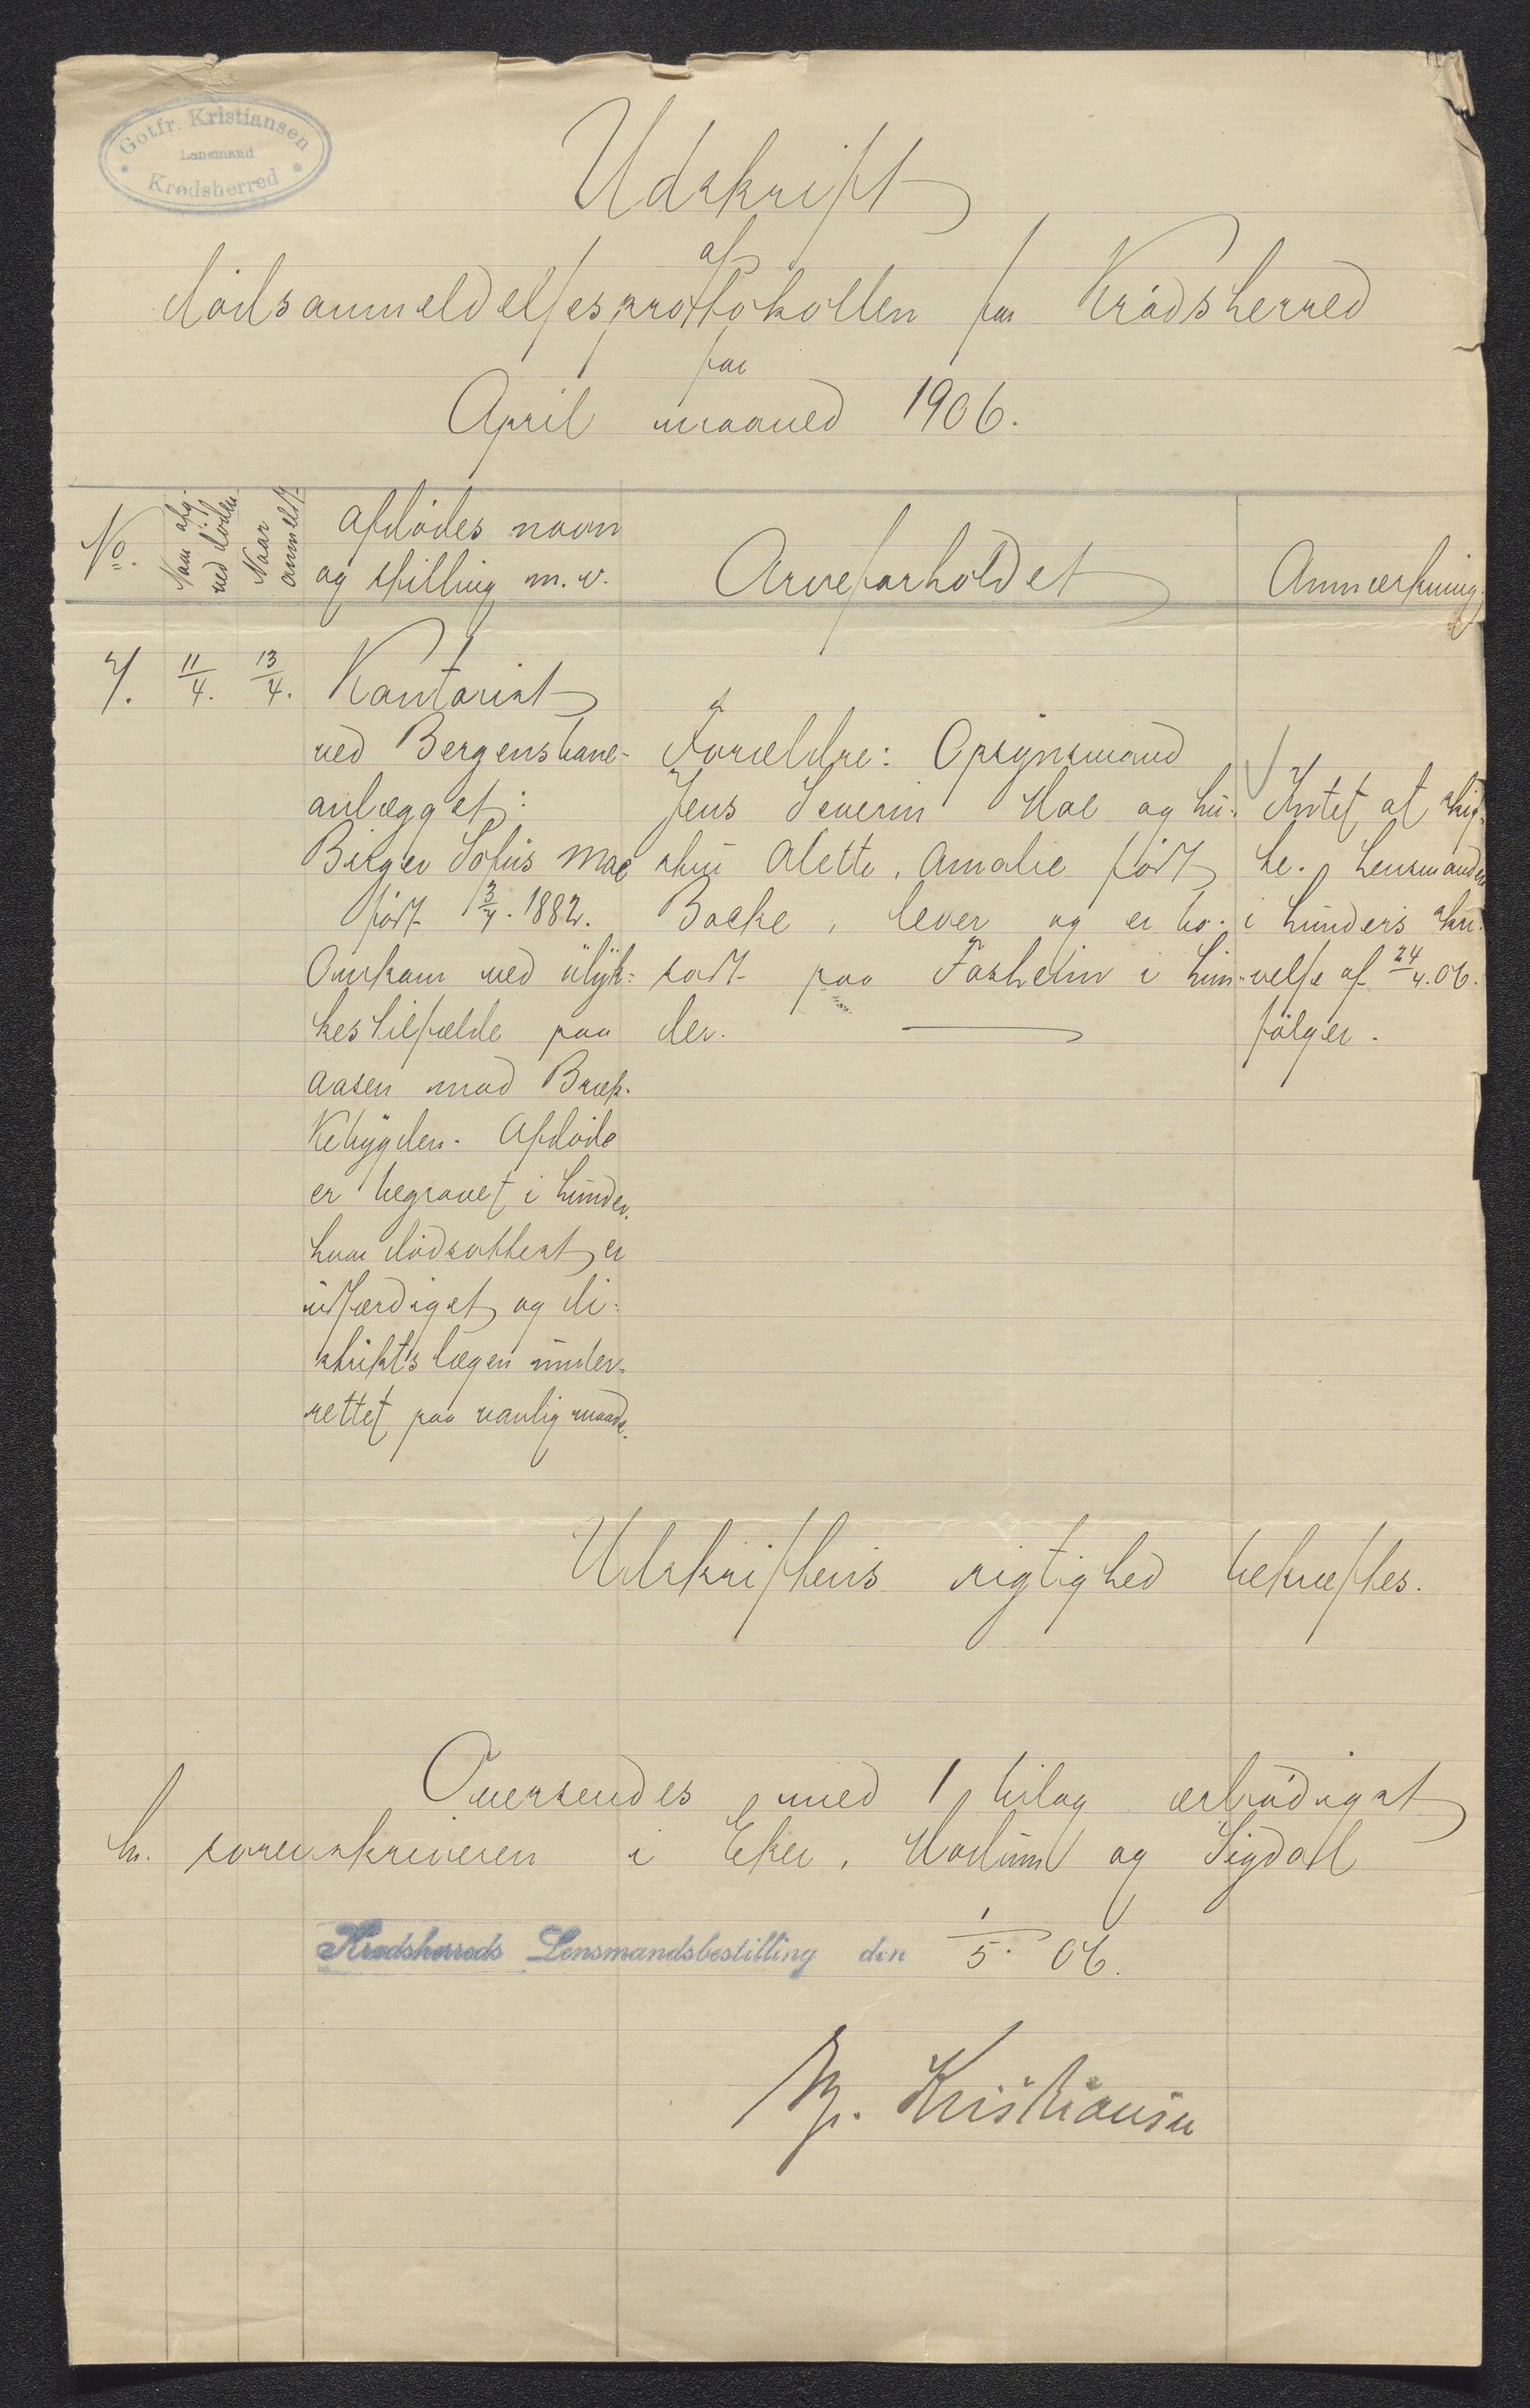 Gotfr. Kristiansen
Lensmand
Krødsherred
Udskrift
af
dødsanmeldelsesprottokollen for Krødsherred
for
April maaned 1906.
No.
Naar afg. ved døden
Naar anmeldt
Afdødes navn
og stilling m. v.
Arveforholdet
Anmærkning.
7. 11/4. 13/4.
Kontorist
ved Bergensbane-
anlægget:
Birger Sofus Moe
født 3/7. 1882.
Omkom ved ulyk-
kestilfælde paa
aasen mod Bræk-
kebygden. Afdøde
er begravet i Lunder.
hvor dødsattest er
utfærdiget og di-
striktslægen under-
rettet paa vanlig maade.
Forældre: Opsynsmand
Jens Severin Moe og hu-
stru Alette, Amalie født
Bocke, lever og er bo-
sat paa Fosheim i Lun-
der.
Intet at skif-
te. Lensmanden
i Lunders skri-
velse af 24/4. 06.
følger.
Udskriftens rigtighed bekræftes.
Oversendes med 1 bilag ærbødigst
hr. sorenskriveren i Eker, Modum og Sigdal
Krødsherreds Lensmandsbestilling den 1/5. 06.
Kristiansen